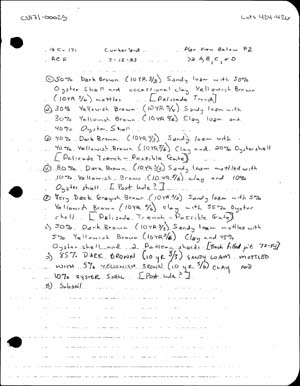 CV171-00025 Lots 424-426
18CV171 Cumberland Plan View Below PZ
RCR 7-18-83 72 A, B, C, + D
① 50% Dark Brown (10YR 3/3) Sandy loam with 50%
Oyster Shell and occasional clay Yellowish Brown
(10YR 5/6) mottles [Palisade Trench]
② 30% Yellowish Brown Sandy loam with
30% Yellowish Brown (10YR 5/6) Clay loam and
40% Oyster Shell
③ 40% Dark Brown (10YR 3/3) Sandy loam with
40% Yellowish Brown (10YR 5/6) Clay and 20% Oyster shell
[Palisade Trench - Possible Gate]
④ 80% Dark Brown (10YR 3/3) Sandy loam mottled with
10% Yellowish Brown (10YR 5/6) clay and 10%
Oyster shell. [Post hole?]
Very Dark Grayish Brown Sandy loam with 5%
Yellowish Brown (10YR 5/6) clay with 75% Oyster
shell [Palisade Trench - Possible Gate]
50% Dark Brown (10YR 3/3) Sandy loam with
5% Yellowish Brown (10YR 5/6) Clay and 45%
Oyster shell and 2 Patterns shells
85% DARK BROWN (10 YR 3/3) SANDY LOAM MOTTLED
WITH 5% YELLOWISH BROWN (10 YR 5/6) CLAY AND
10% OYSTER SHELL [Post hole?]
8) Subsoil